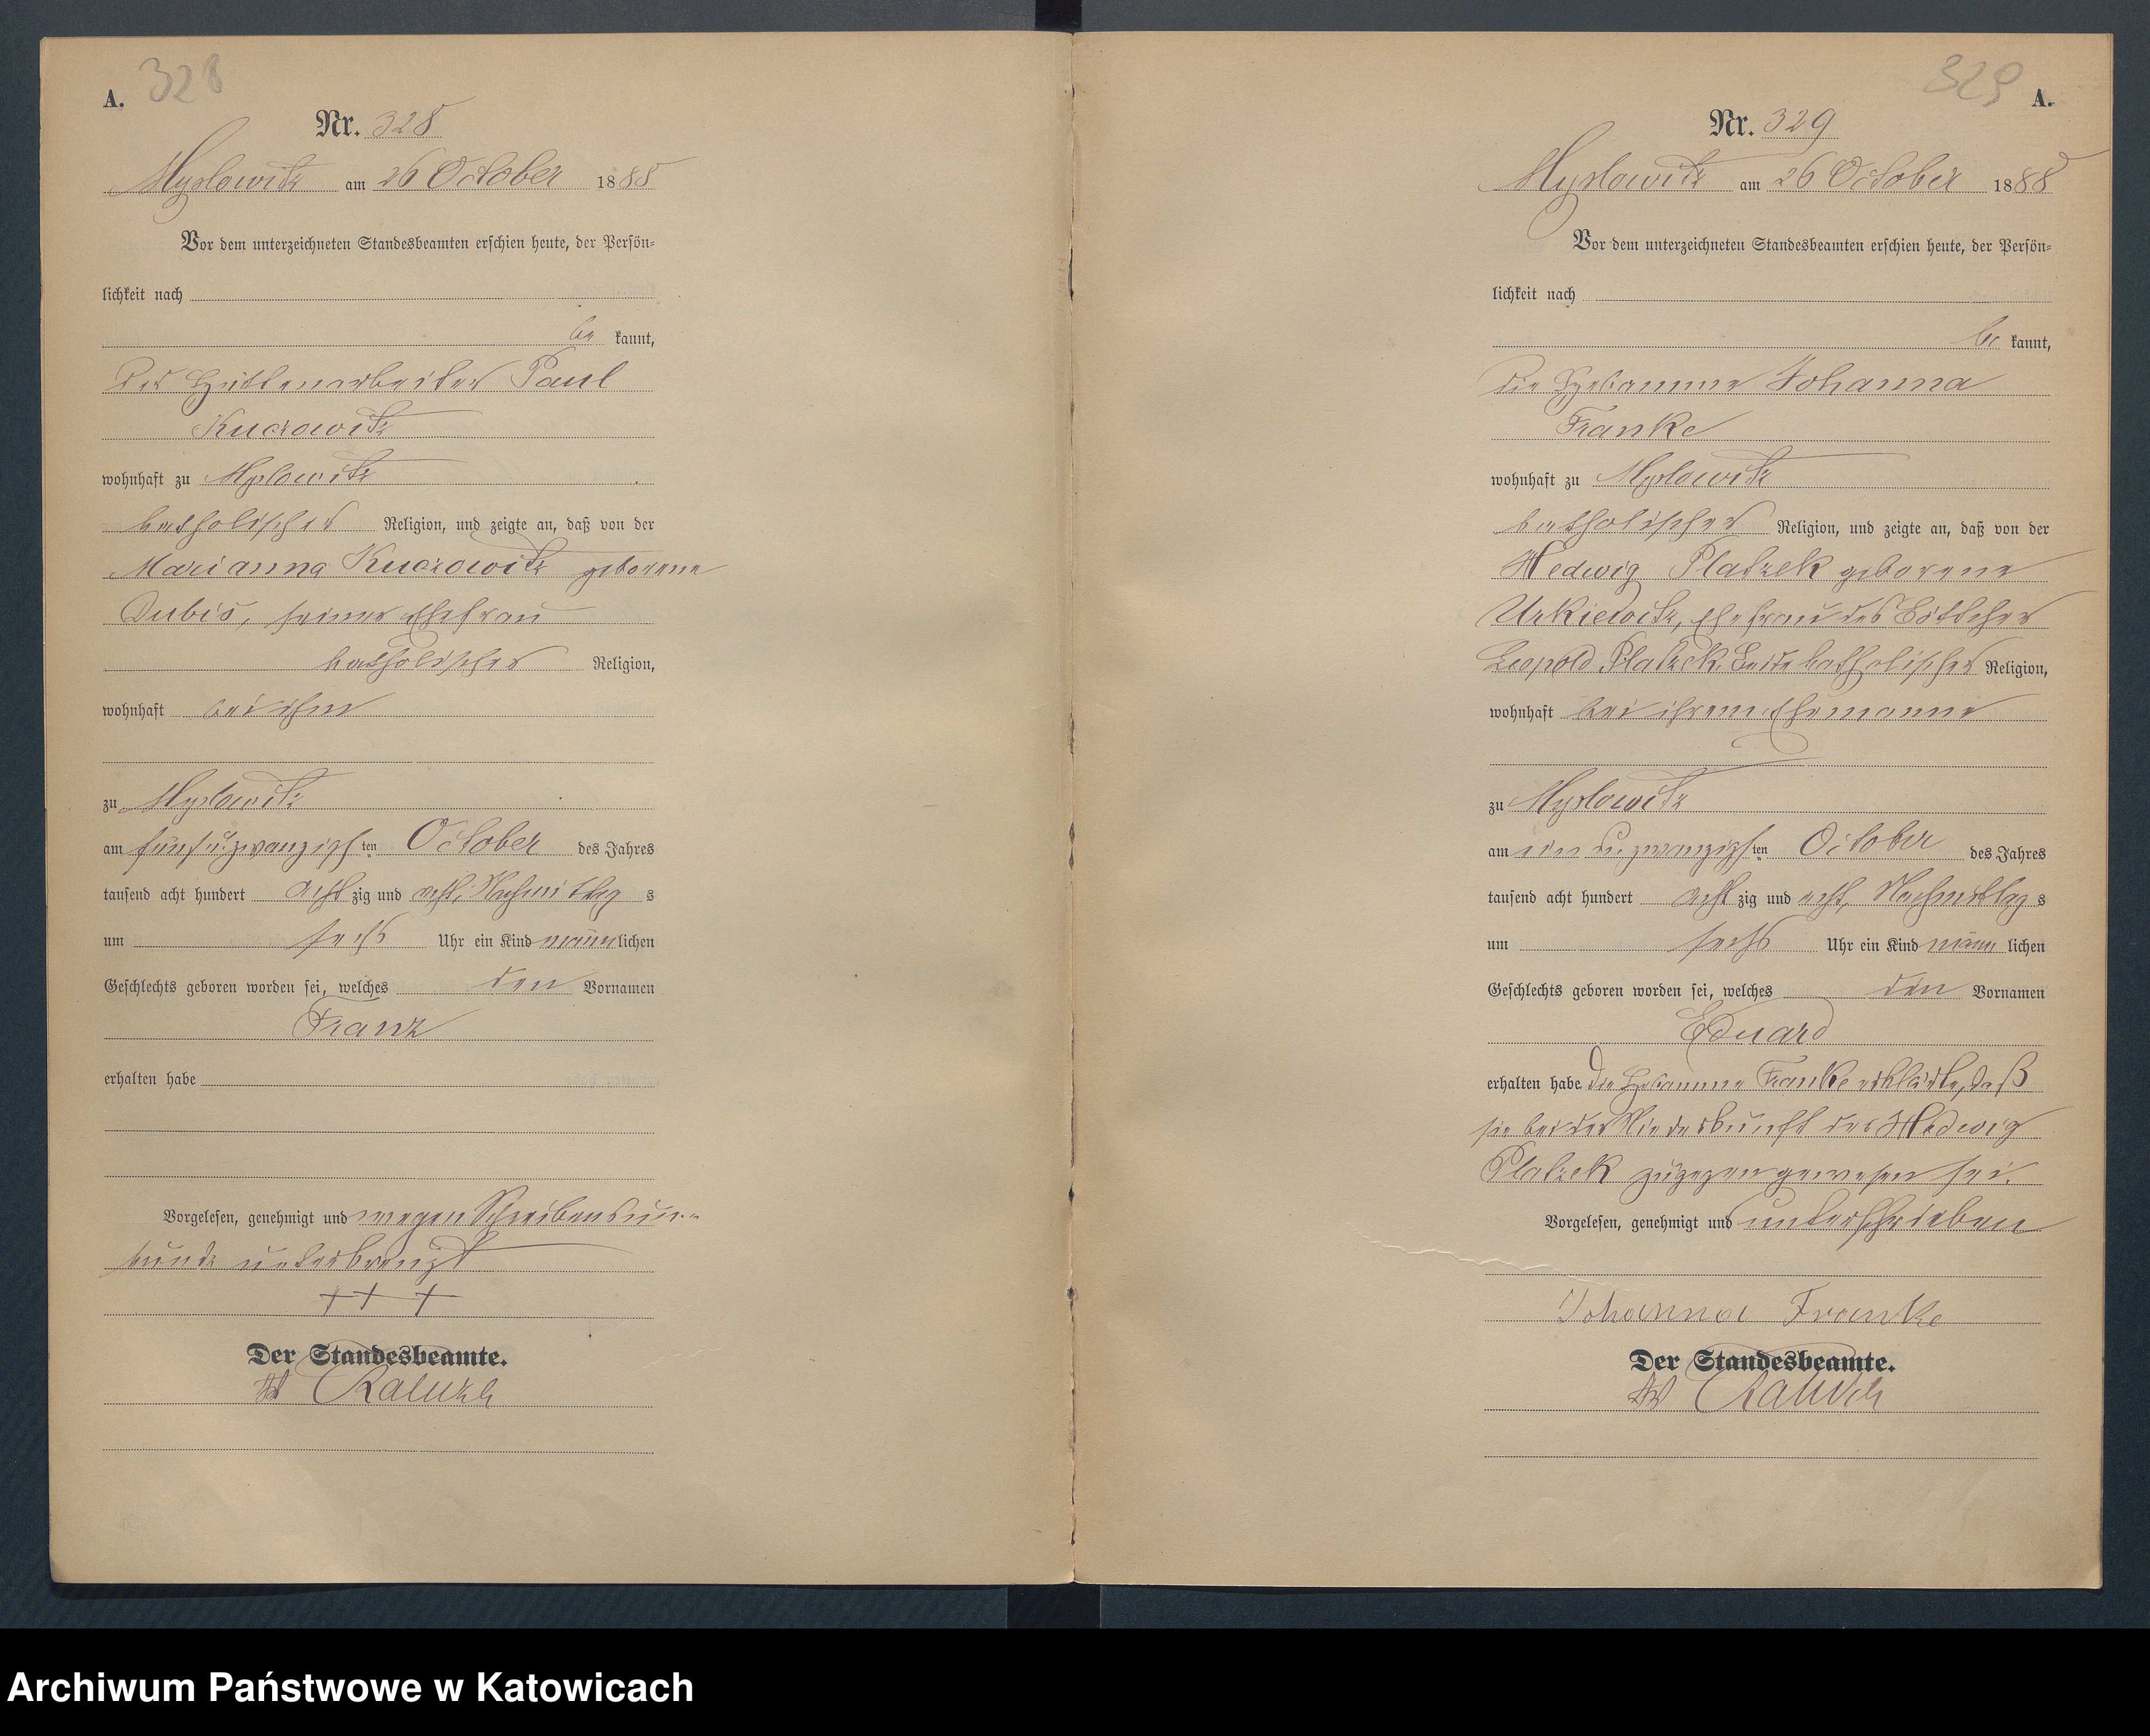 A. 328
Nr. 328
Myslowitz am 26 October 1888
Vor dem unterzeichneten Standesbeamten erschien heute, der Persön-
lichkeit nach
be kannt,
der Hüttenarbeiter Paul
Kuczowitz
wohnhaft zu Myslowitz
katholischer Religion, und zeigte an, daß von der
Marianna Kuczowitz geborene
Dubis, seiner Ehefrau
katholischer Religion,
wohnhaft bei ihm
zu Myslowitz
am fünf u. zwanzigsten October des Jahres
tausend acht hundert acht zig und acht, Nachmittag s
um sechs Uhr ein Kind männlichen
Geschlechts geboren worden sei, welches den Vornamen
Franz
erhalten habe
Vorgelesen, genehmigt und wegen Schreibensun-
kunde unterkreuzt
+++
Der Standesbeamte.
329 A.
Nr. 329
Myslowitz am 26 October 1888
Vor dem unterzeichneten Standesbeamten erschien heute, der Persön-
lichkeit nach
be kannt,
die Hebamme Johanna
Franke
wohnhaft zu Myslowitz
katholischer Religion, und zeigte an, daß von der
Hedwig Platzek geborene
Urkiewitz, Ehefrau des Böttcher
Leopold Platzek, Beide katholischer Religion,
wohnhaft bei ihrem Ehemanne
zu Myslowitz
am ein u. zwanzigsten October des Jahres
tausend acht hundert acht zig und acht, Nachmittag s
um sechs Uhr ein Kind männ lichen
Geschlechts geboren worden sei, welches den Vornamen
Eduard
erhalten habe. Die Hebamme Franke erklärte, daß
sie bei der Niederkunft der Hedwig
Platzek zugegen gewesen sei.
Vorgelesen, genehmigt und unterschrieben
Johanna Franke
Der Standesbeamte.
Archiwum Państwowe w Katowicach